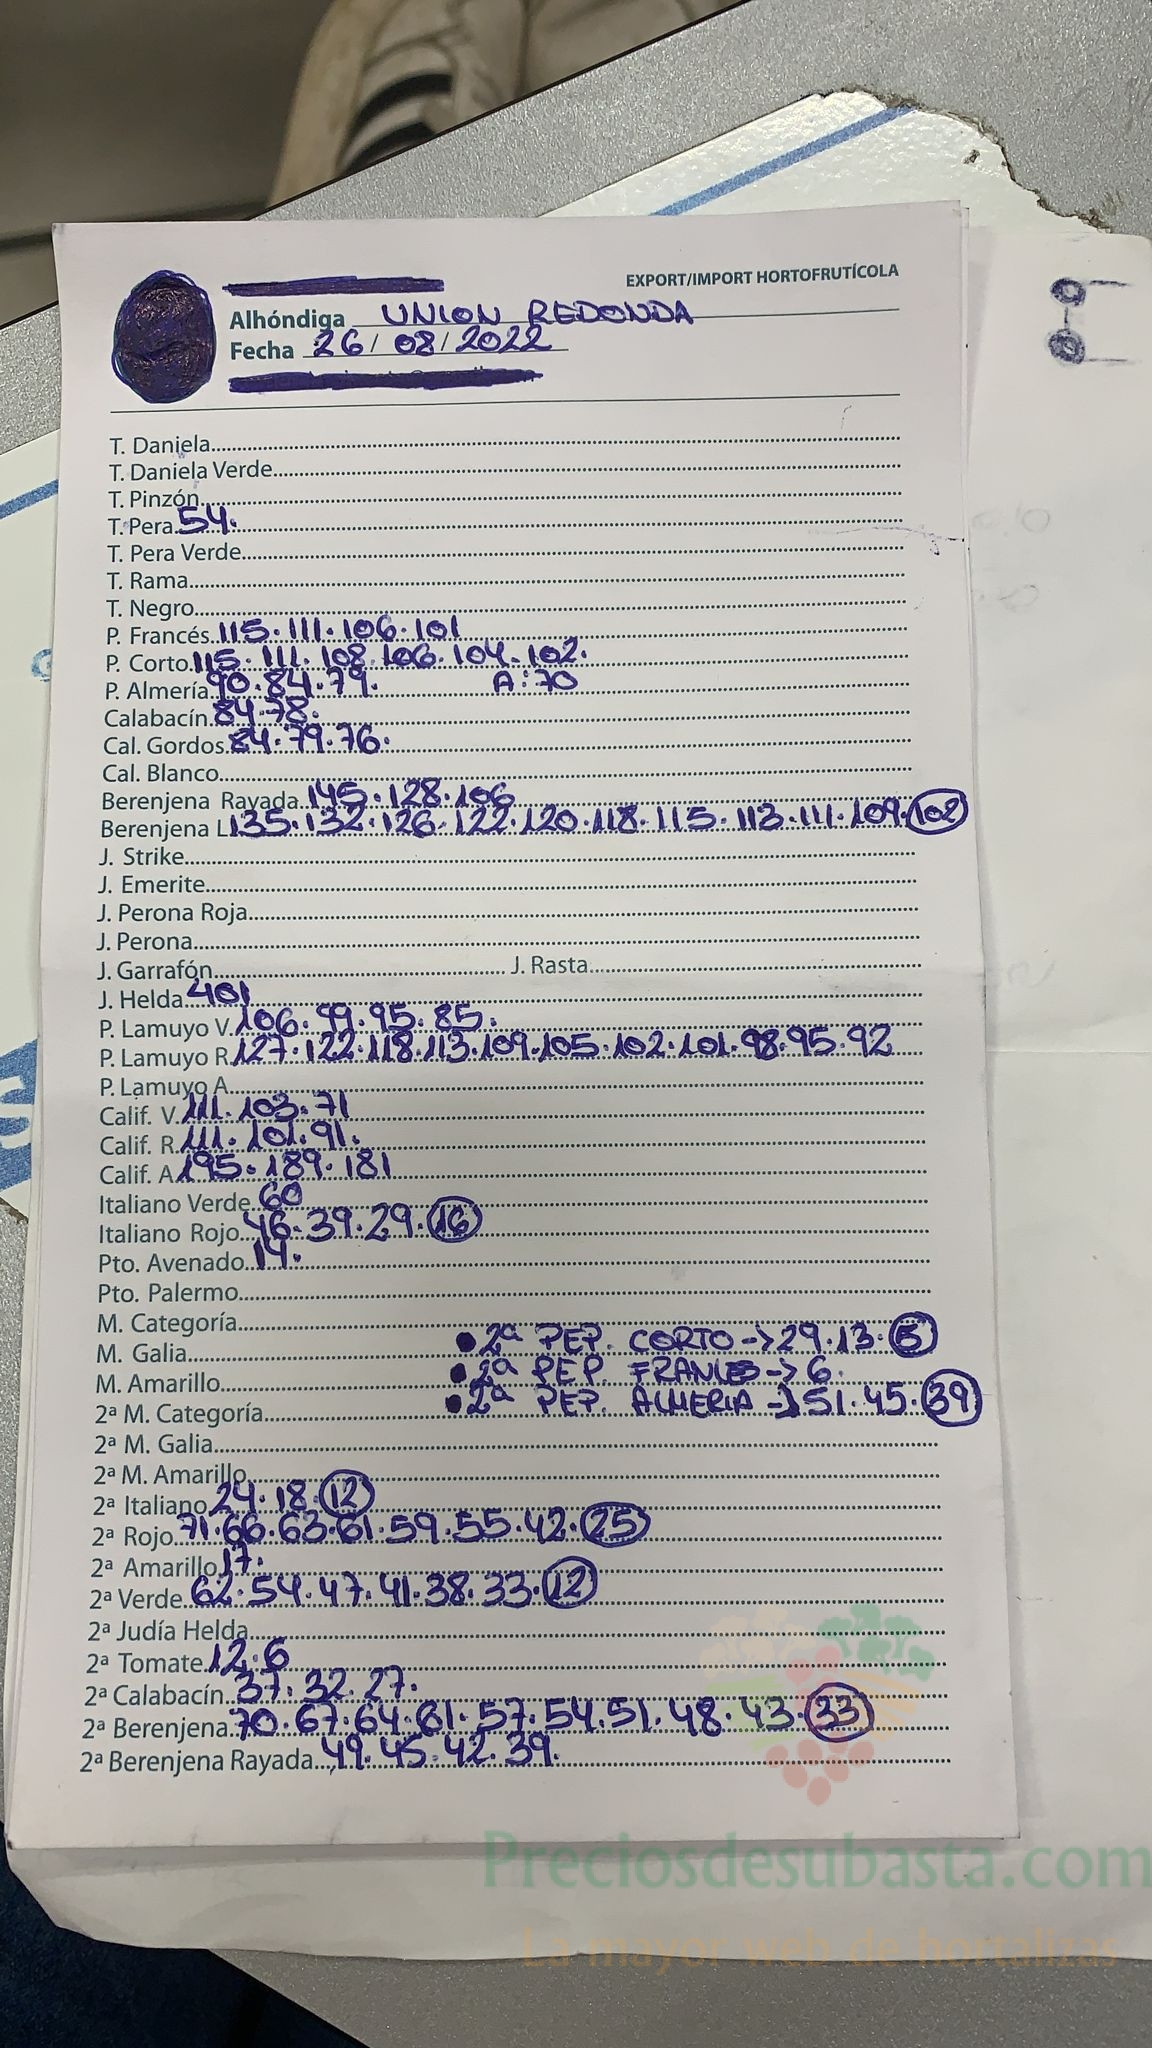 EXPORT/IMPORT HORTOFRUTÍCOLA
Alhóndiga UNION REDONDA
Fecha 26/08/2022
T. Daniela
T. Daniela Verde
T. Pinzón
T. Pera 54.
T. Pera Verde
T. Rama
T. Negro
P. Francés 115.111.106.101
P. Corto 115.111.108.106.104.102.
P. Almería 90.84.79. A:70
Calabacín 84.78.
Cal. Gordos 84.79.76.
Cal. Blanco
Berenjena Rayada 145.128.106
Berenjena L 135.132.126.122.120.118.115.113.111.109.102
J. Strike
J. Emerite
J. Perona Roja
J. Perona
J. Garrafón J. Rasta
J. Helda 401
P. Lamuyo V. 106.99.95.85.
P. Lamuyo R 127.122.118.113.109.105.102.101.98.95.92
P. Lamuyo A
Calif. V. 111.103.71
Calif. R. 111.101.91.
Calif. A 195.189.181
Italiano Verde 60
Italiano Rojo 46.39.29.16
Pto. Avenado 14.
Pto. Palermo
M. Categoría
2ª PEP. CORTO->29.13.5
M. Galia
2ª PEP. FRANCES->6.
M. Amarillo
2ª PEP. ALMERIA->51.45.39
2ª M. Categoría
2ª M. Galia
2ª M. Amarillo
2ª Italiano 24.18.12
2ª Rojo 71.66.63.61.59.55.42.25
2ª Amarillo 17.
2ª Verde 62.54.47.41.38.33.12
2ª Judía Helda
2ª Tomate 12.6
2ª Calabacín 37.32.27.
2ª Berenjena 70.67.64.61.57.54.51.48.43.33
2ª Berenjena Rayada 49.45.42.39.
Preciosdesubasta.com
La mayor web de hortalizas